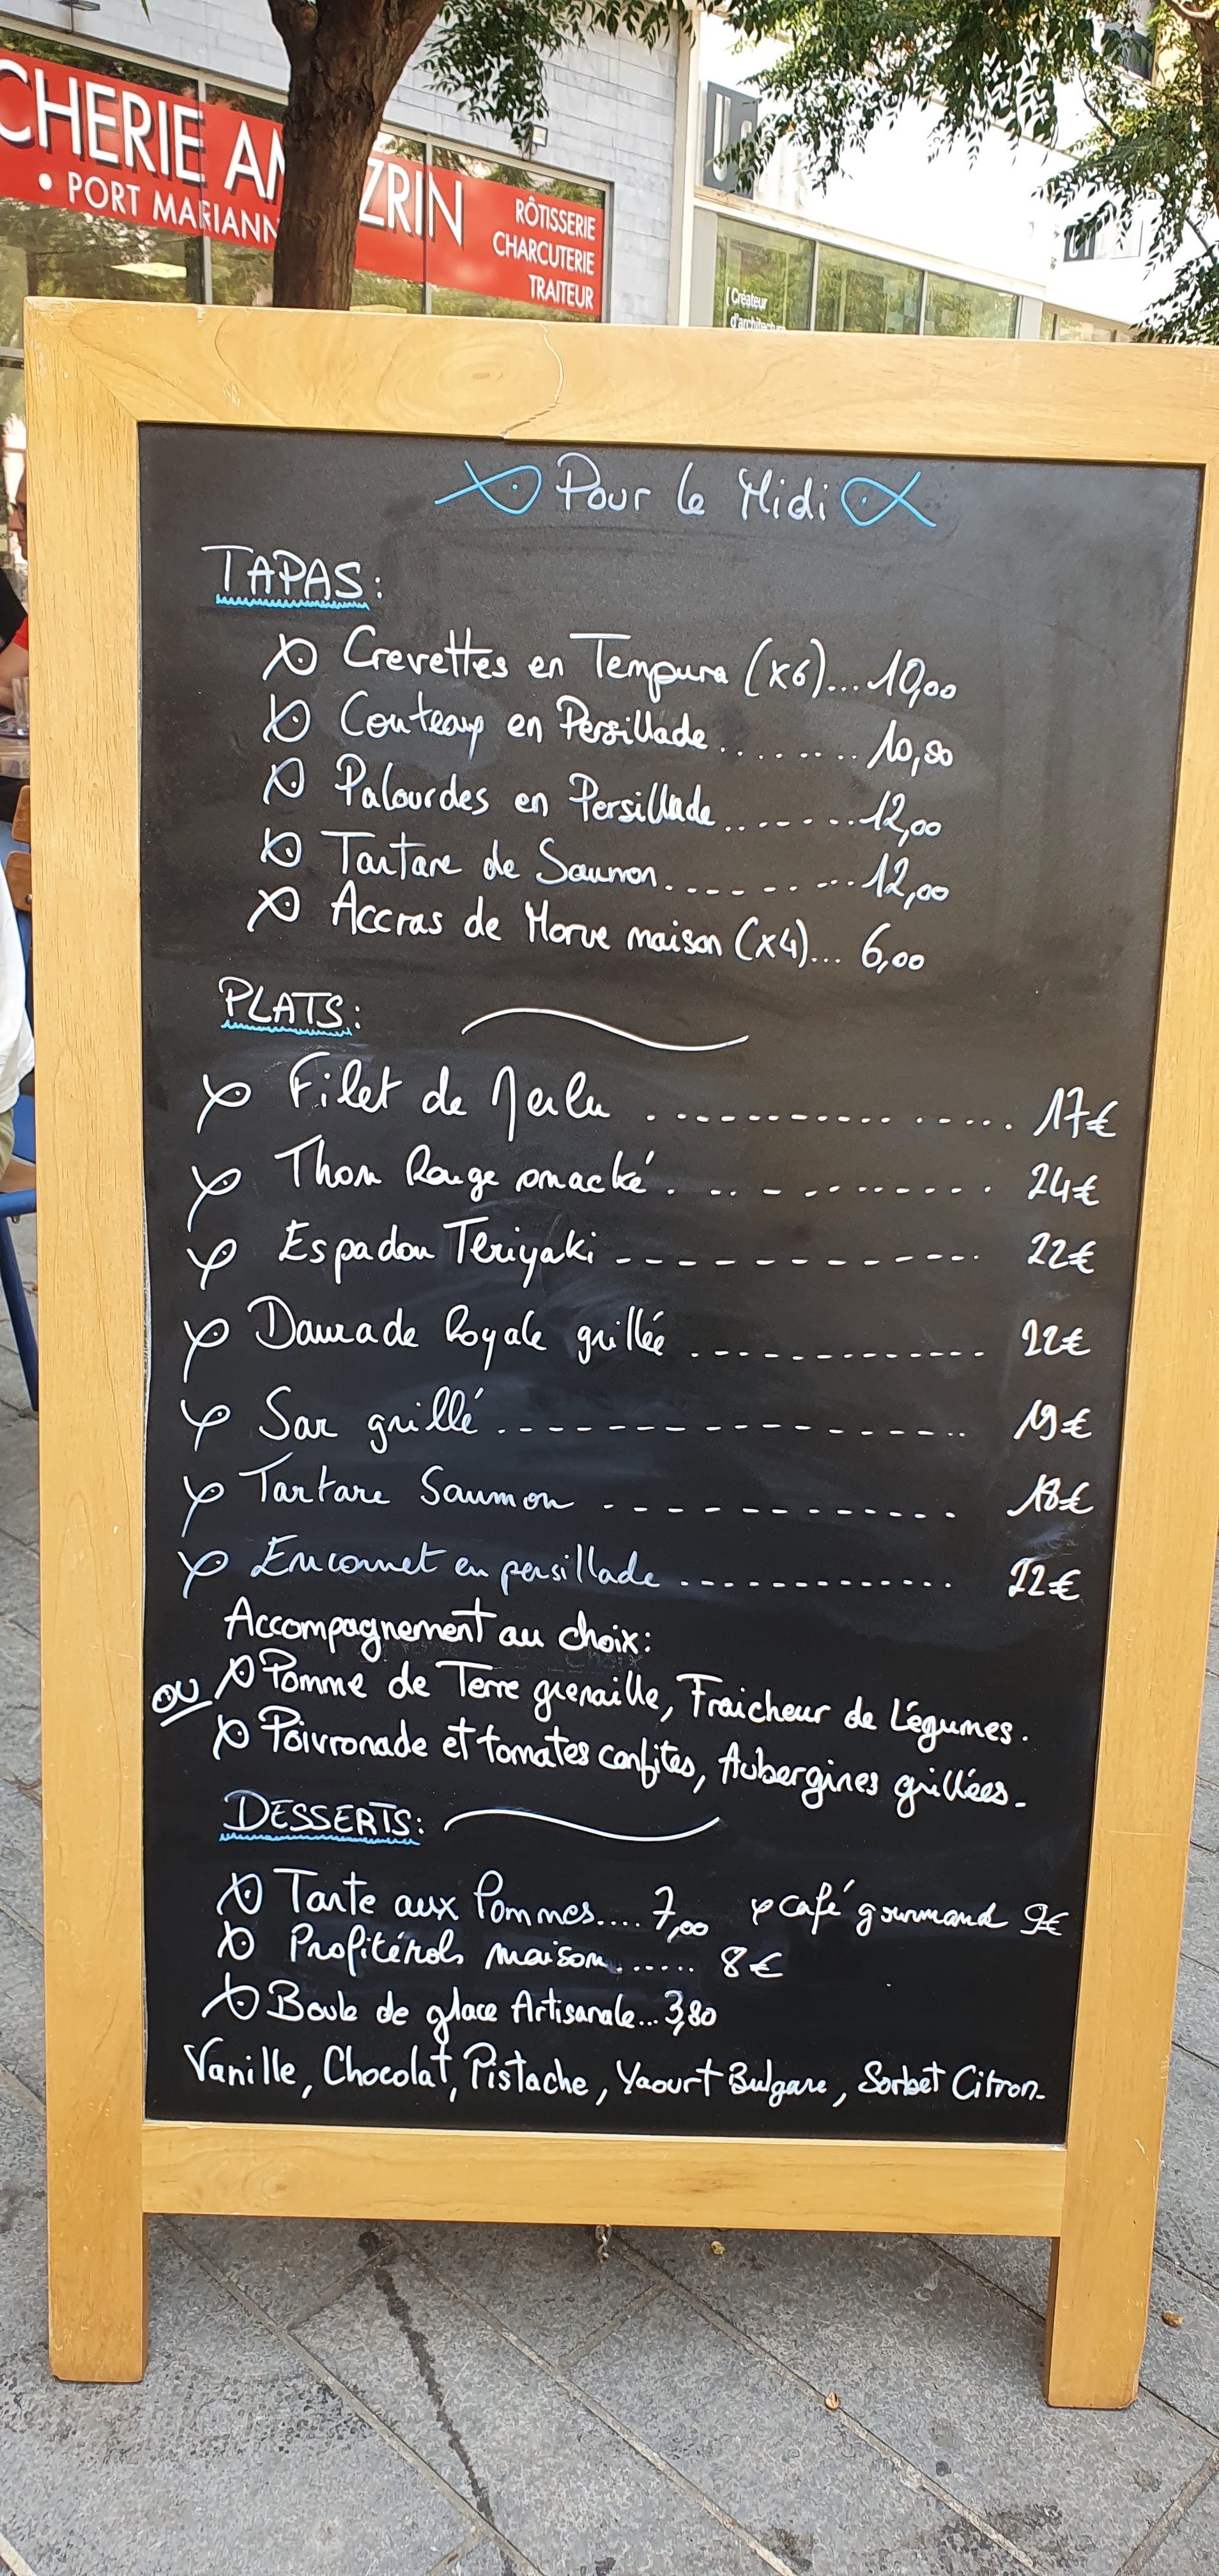 CHERIE AM ZRIN
• PORT MARIANN
RÔTISSERIE
CHARCUTERIE
TRAITEUR
[Créateur
d'architecture
Pour le Midi
TAPAS:
Crevettes en Tempura (x6)... 10,00
Couteaux en Persillade......... 10,80
Palourdes en Persillade......... 12,00
Tartare de Saumon......... 12,00
Accras de Morue maison (x4)... 6,00
PLATS:
Filet de Merlu ................ 17€
Thon Rouge snacké ............ 24€
Espadon Teriyaki ------------- 22€
Daurade Royale grillée ............. 22€
Sar grillé ................ 19€
Tartare Saumon ------------ 18€
Encornet en persillade ............. 22€
Accompagnement au choix:
Pomme de Terre grenaille, Fraicheur de Légumes.
OU
Poivronade et tomates confites, Aubergines grillées.
DESSERTS:
Tarte aux Pommes.... 7,00 café gourmand 9€
Profitérols maison....... 8€
Boule de glace Artisanale... 3,80
Vanille, Chocolat, Pistache, Yaourt Bulgare, Sorbet Citron.